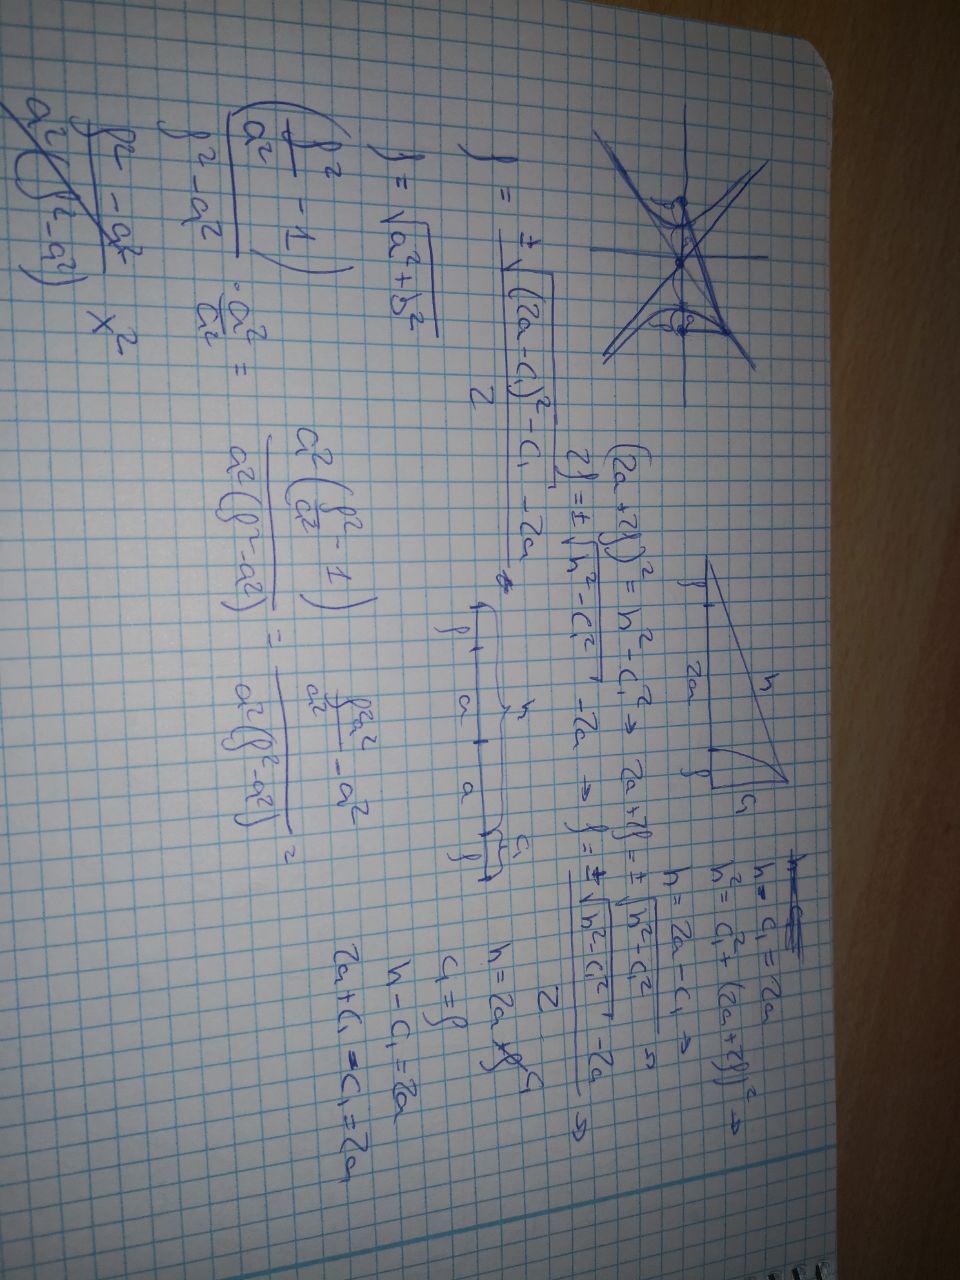 h - c₁ = 2a
h² = c₁² + (2a+2f)² →
f 2a f h c₁
(2a+2f)² = h² - c₁² → 2a+2f = ±√(h² - c₁²) →
h = 2a - c₁ →
2f = ±√(h² - c₁²) - 2a → f = (±√(h² - c₁²) - 2a)/2 →
f = (±√((2a - c₁)² - c₁) - 2a)/2
f a a f h c₁
h = 2a + c₁
c₁ = f
h - c₁ = 2a
2a + c₁ - c₁ = 2a
f = √(a² + b²)
(f²/a² - 1)/(f² - a²) · a²/a² = a²(f²/a² - 1)/(a²(f² - a²)) = (f²a²/a² - a²)/(a²(f² - a²)) =
(f² - a²)/(a²(f² - a²)) x²